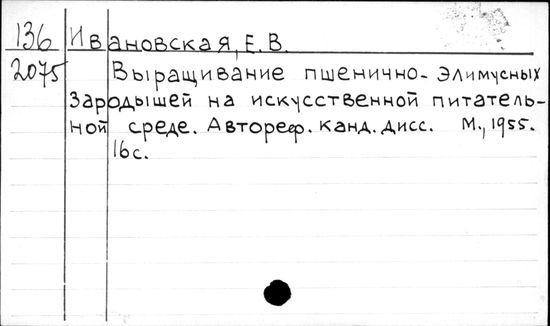 136 Ивановская, Е. В.
2075 Выращивание пшенично-элимусных
зародышей на искусственной питатель-
ной среде. Автореф. канд. дисс. М., 1955.
16с.